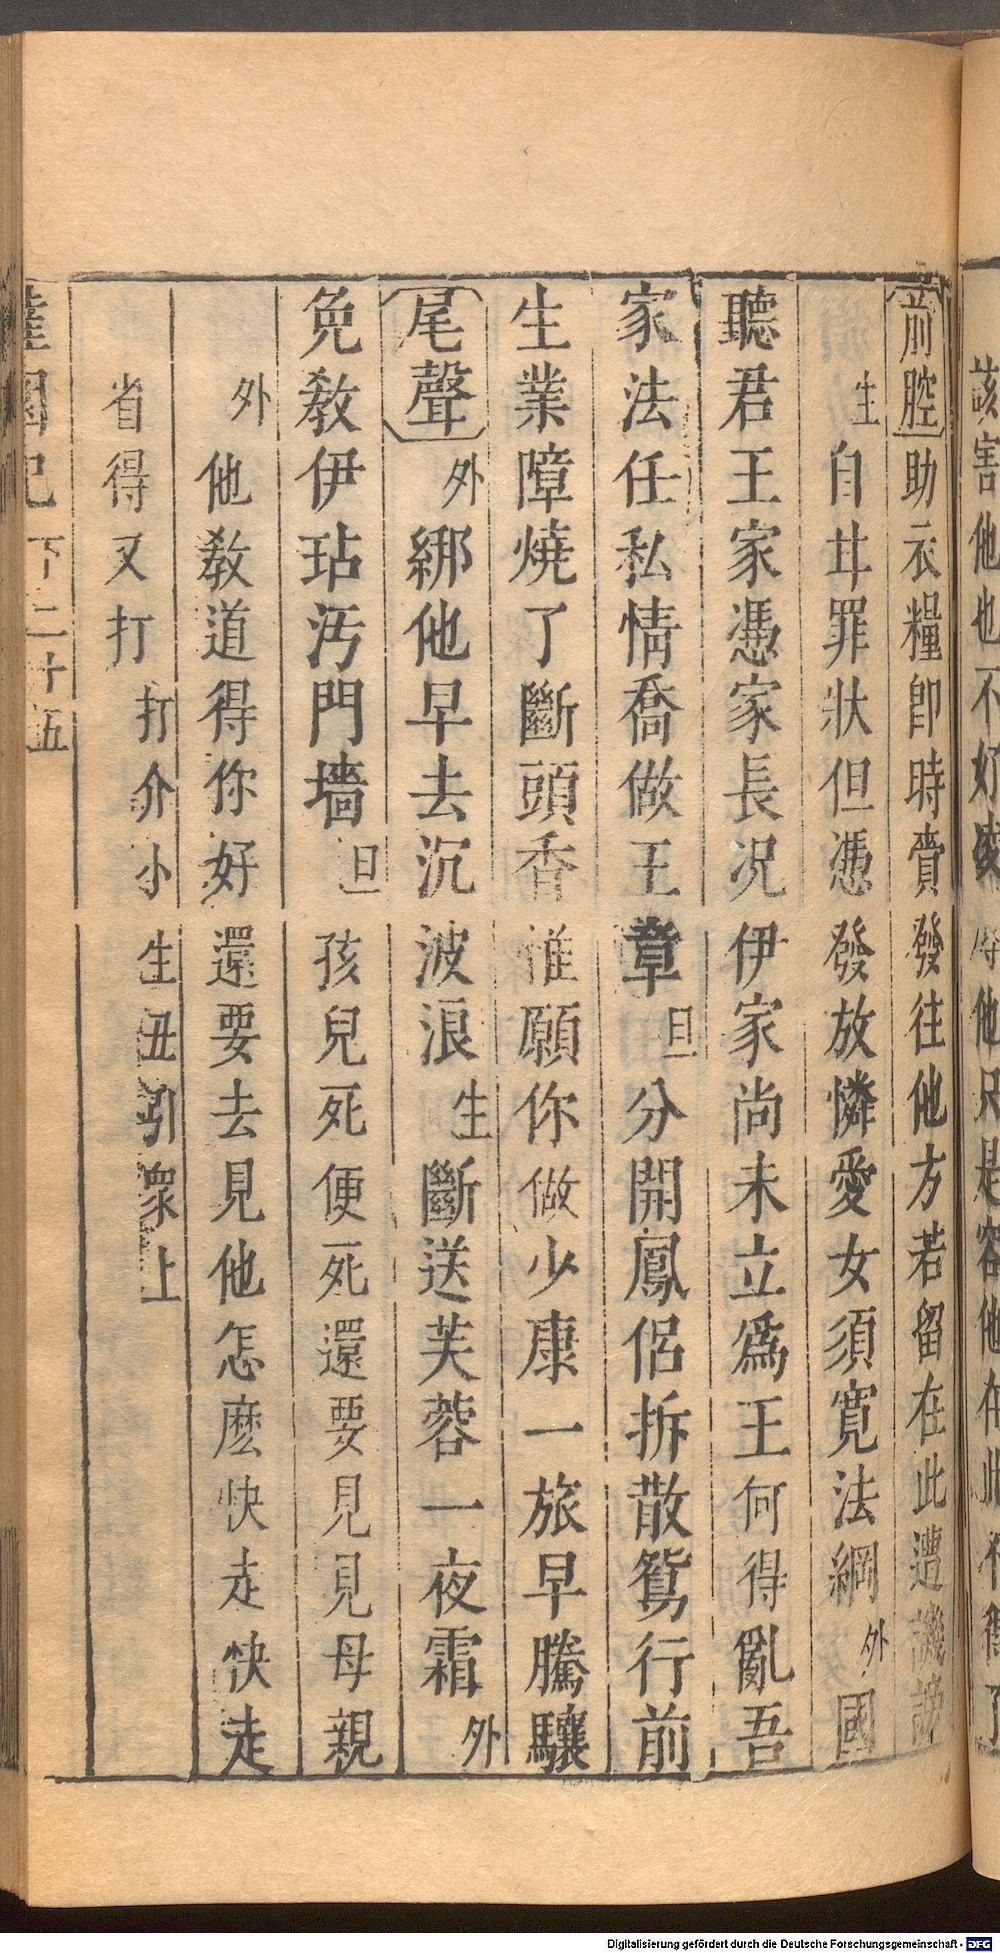 該害他也不好成 他只是容他在此不得了
前腔助衣糧即時賫發往他方若留在此遭譏謗
生自廿罪狀但憑發放憐愛女須寛法網外國
聽君王家憑家長况伊家尚未立爲王何得亂吾
家法任私情喬做王章旦分開鳳侶拆散鴛行前
生業障燒了斷頭香惟願你做少康一旅早騰驤
尾聲外綁他早去沉波浪生斷送芙蓉一夜霜外
免教伊玷污門墻旦孩兒死便死還要見見母親
外他教道得你好還要去見他怎麽快走快走
省得又打打介小生丑引衆上
國記 下二十五
Digitalisierung gefördert durch die Deutsche Forschungsgemeinschaft - DFG